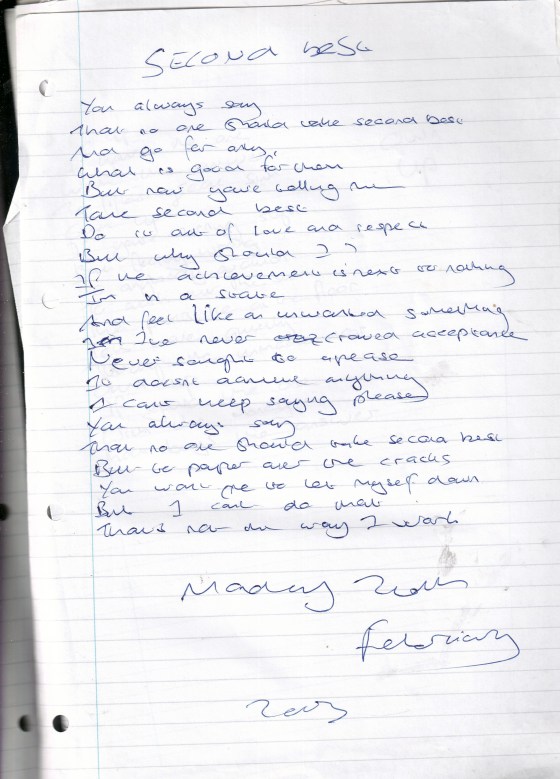 SECOND best
You always say
That no one should take second best
And go for only
What is good for them
But now you're telling me
Take second best
Do it out of love and respect
But why should I?
If the achievement is next to nothing
I'm in a state
And feel like an unwanted something
I've never craved acceptance
Never sought to appease
It doesn't achieve anything
I can't keep saying please
You always say
That no one should take second best
But to paper over the cracks
You want me to let myself down
But I can't do that
That's not the way I work
Monday
February